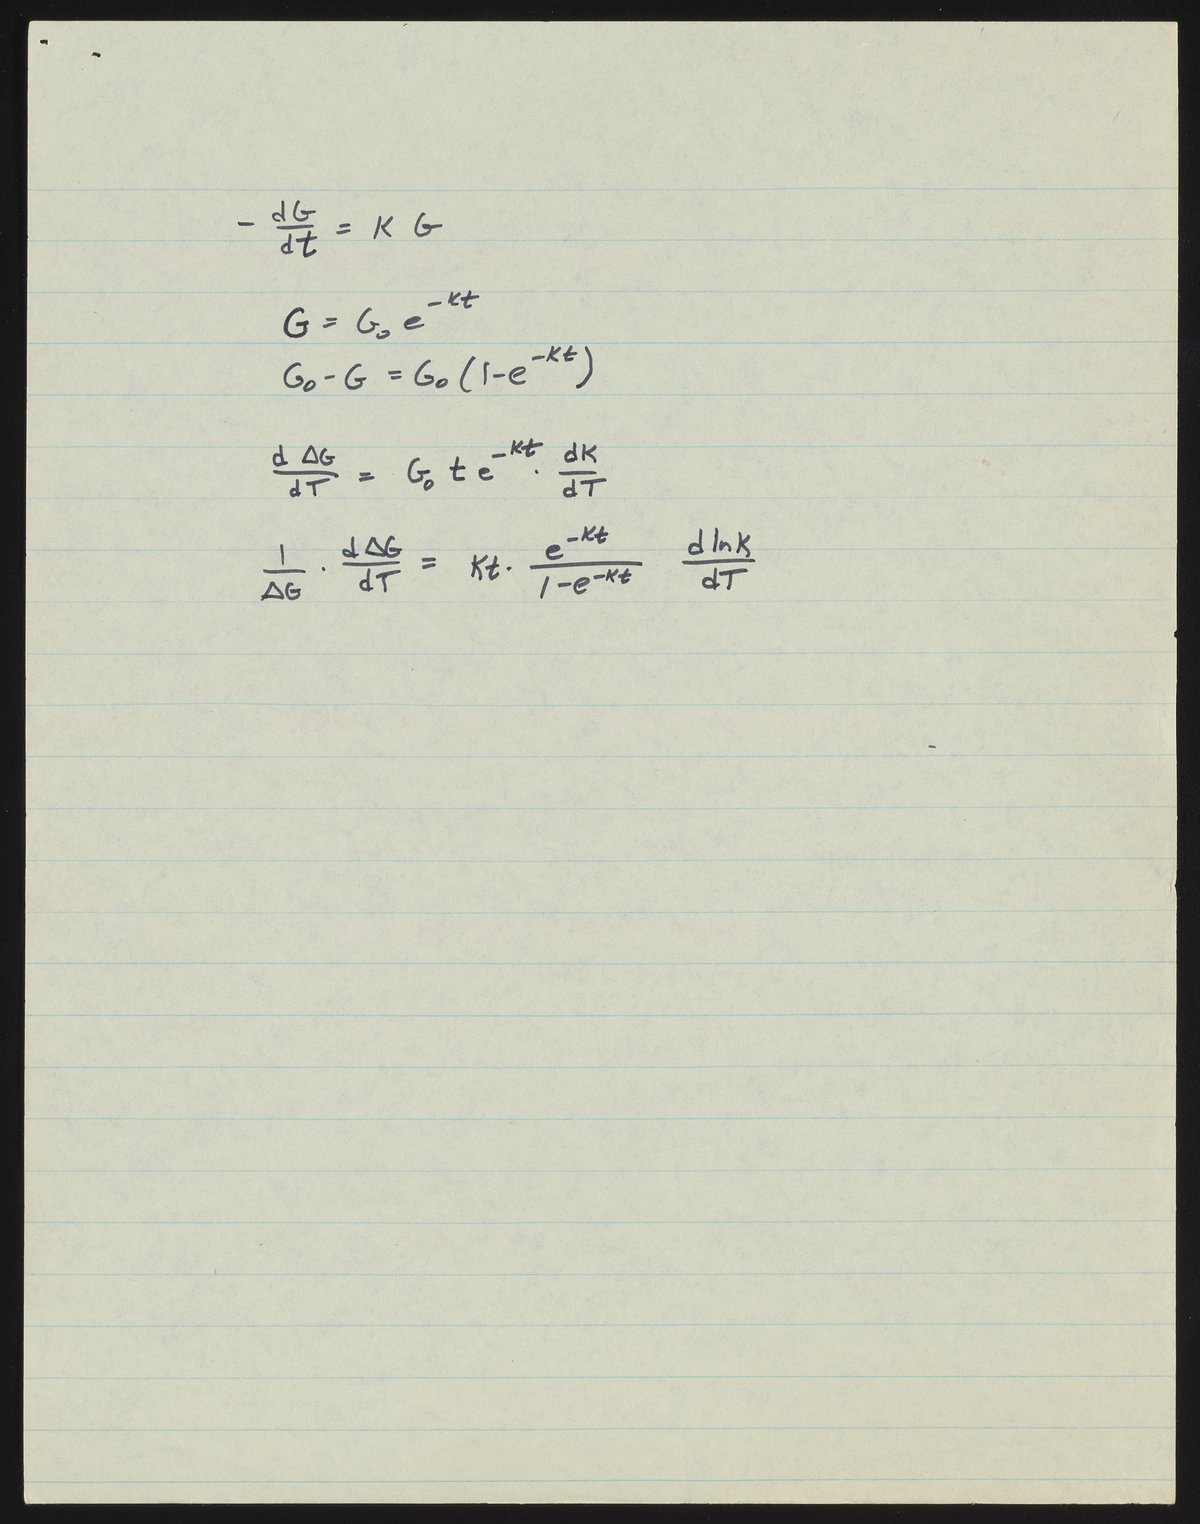 - dG/dt = K G
G = G₀ e^{-Kt}
G₀ - G = G₀ (1-e^{-Kt})
d ΔG/dT = G₀ t e^{-Kt} · dK/dT
1/ΔG · dΔG/dT = Kt · e^{-Kt}/1-e^{-Kt} d lnK/dT